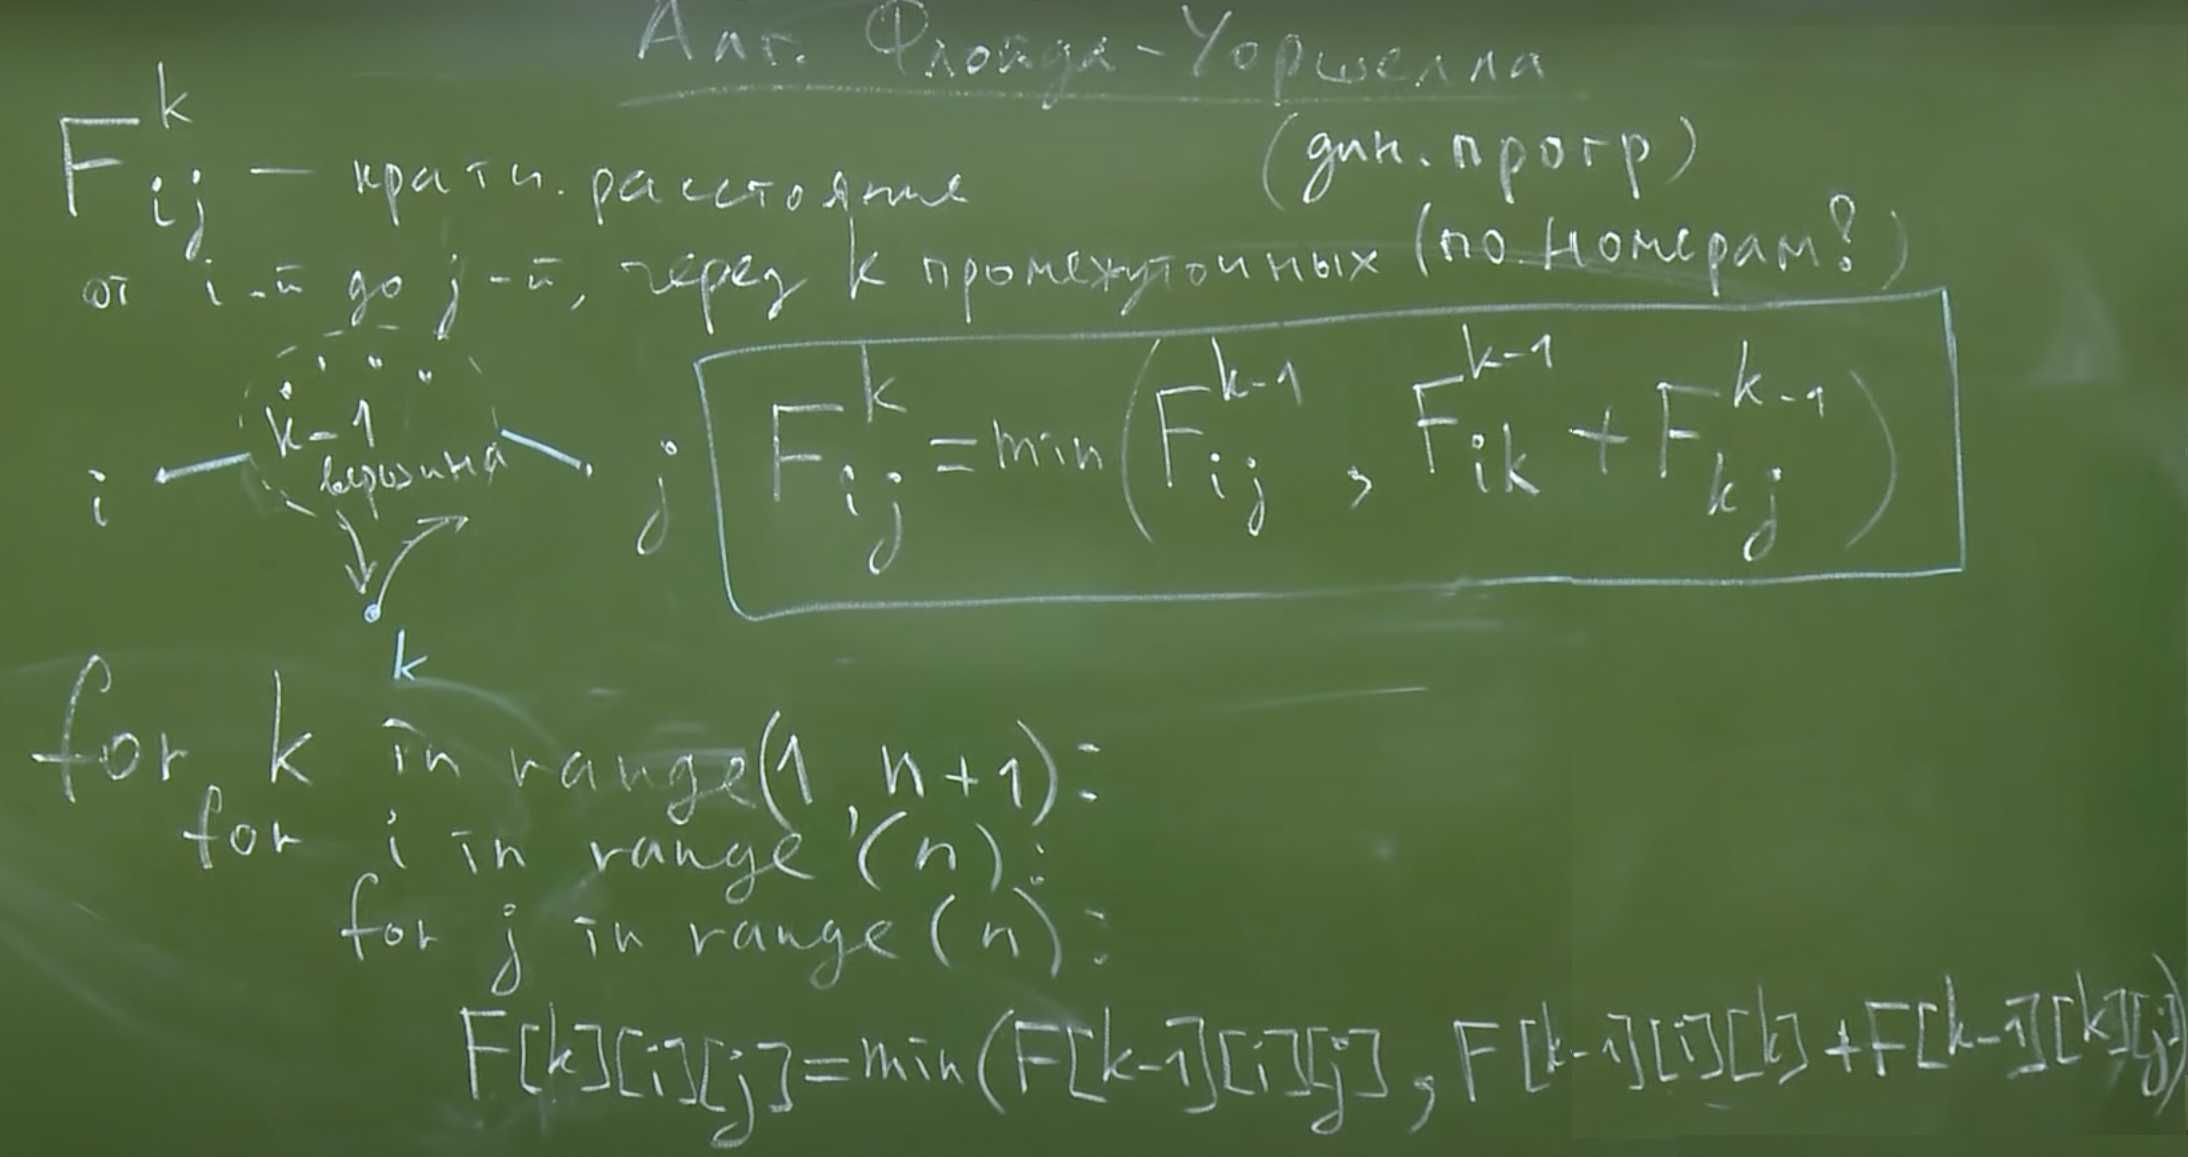 Алг. Флойда-Уоршелла
(дин. прогр)
F_{ij}^{k} — кратч. расстояние
от i-й до j-й, через k промежуточных (по номерам!)
k-1
вершина
i
j
k
F_{ij}^{k} = min(F_{ij}^{k-1}, F_{ik}^{k-1} + F_{kj}^{k-1})
for k in range(1, n+1):
for i in range(n):
for j in range(n):
F[k][i][j]=min(F[k-1][i][j], F[k-1][i][k]+F[k-1][k][j])